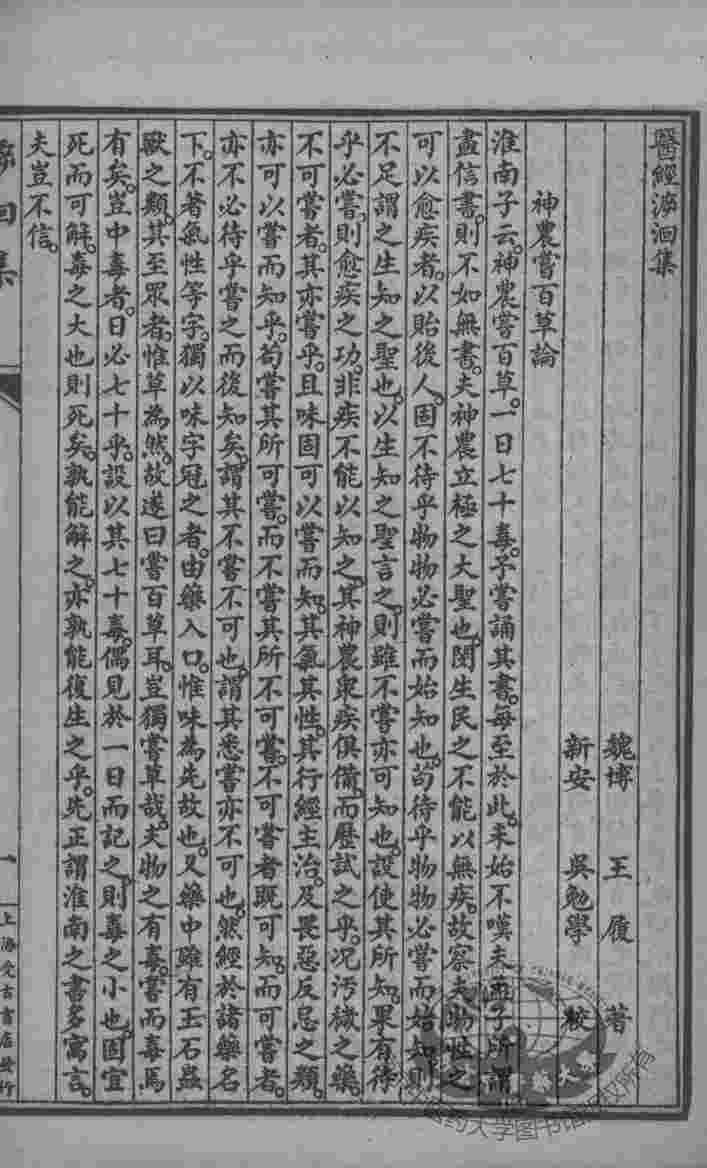 醫經泝洄集
魏博 王履 著
新安 吳勉學 校
神農嘗百草論
淮南子云。神農嘗百草。一日七十毒。予嘗誦其書。每至於此。未始不嘆夫孟子所謂
盡信書。則不如無書。夫神農立極之大聖也。閔生民之不能以無疾。故察夫物性之
可以愈疾者。以貽後人。固不待乎物物必嘗而始知也。苟待乎物物必嘗而始知則
不足謂之生知之聖也。以生知之聖言之。則雖不嘗亦可知也。設使其所知。果有待
乎必嘗。則愈疾之功。非疾不能以知之。其神農衆疾俱備。而歷試之乎。況污穢之藥。
不可嘗者。其亦嘗乎。且味固可以嘗而知。其氣其性。其行經主治。及畏惡反忌之類。
亦可以嘗而知乎。苟嘗其所可嘗。而不嘗其所不可嘗。不可嘗者既可知。而可嘗者。
亦不必待乎嘗之而後知矣。謂其不嘗不可也。謂其悉嘗亦不可也。然經於諸藥名
下。不著氣性等字。獨以味字冠之者。由藥入口。惟味為先故也。又藥中雖有玉石蟲
獸之類。其至眾者。惟草為然。故遂曰嘗百草耳。豈獨嘗草哉。夫物之有毒。嘗而毒焉
有矣。豈中毒者。日必七十乎。設以其七十毒。偶見於一日而記之。則毒之小也。固宜
死而可解。毒之大也則死矣。孰能解之。亦孰能復生之乎。先正謂淮南之書多寓言。
夫豈不信。
洄集
一
上海受古書店發行
中医药大学图书馆版权所有